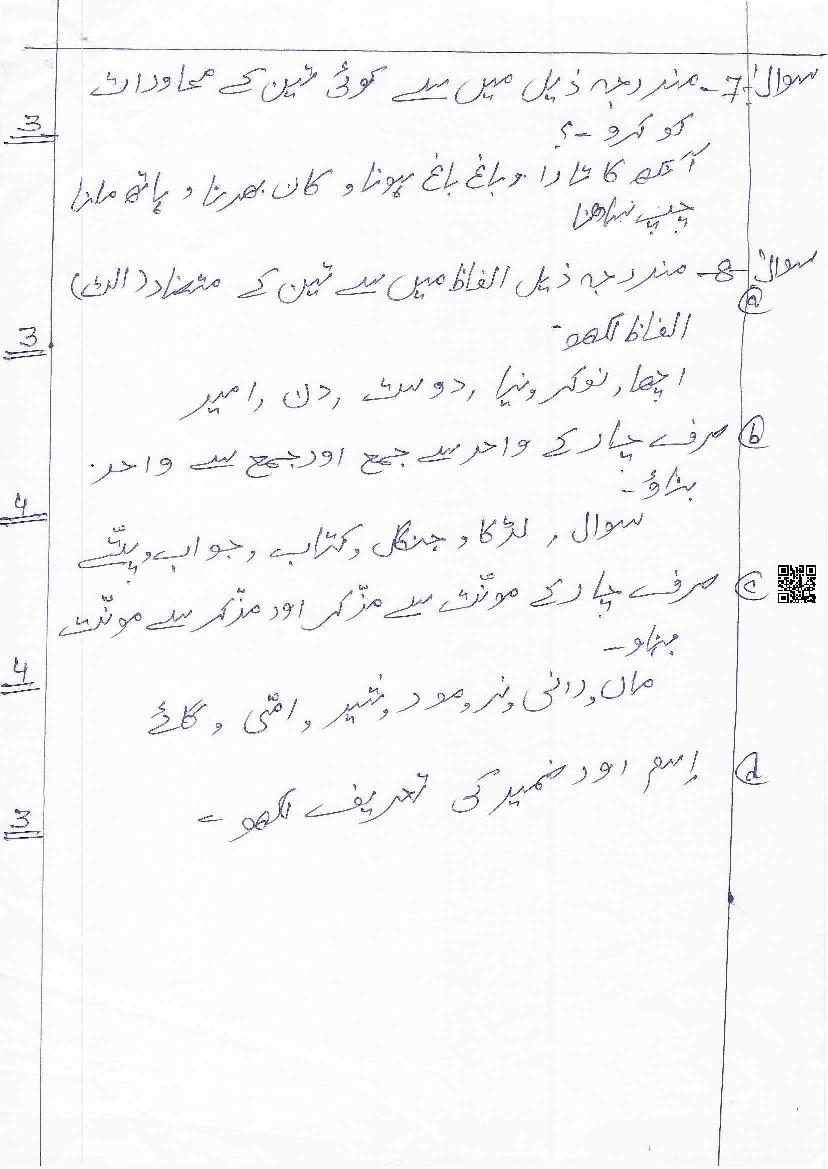 سوال-7- مندرجہ ذیل میں سے کوئی تین کے محاورات
کو کرو -؟
3
آنکھ کا تارا و باغ باغ ہونا و کان بھرنا و ہاتھ ملنا
چپ سادھنا
سوال-8- مندرجہ ذیل الفاظ میں سے تین کے متضاد (الٹ)
a
الفاظ لکھو-
3
اچھا, نوکر, نیا, دوست, دن, امیر
b صرف چار کے واحد سے جمع اور جمع سے واحد
بناؤ-
4
سوال, لڑکا و جنگل, کتاب, جواب, پتّے
c صرف چار کے مونّث سے مذّکر اور مذّکر سے مونّث
بناو-
4
ماں, رانی, نر, مور, شیر, امّی, گائے
d اِسم اور ضمیر کی تعریف لکھو-
3